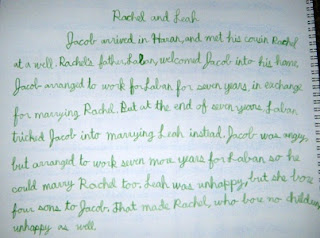 Rachel and Leah
Jacob arrived in Haran, and met his cousin Rachel
at a well. Rachel's father, Laban, welcomed Jacob into his home.
Jacob arranged to work for Laban for seven years, in exchange
for marrying Rachel. But at the end of seven years, Laban
tricked Jacob into marrying Leah instead. Jacob was angry,
but arranged to work seven more years for Laban so he
could marry Rachel too. Leah was unhappy, but she bore
four sons to Jacob. That made Rachel, who bore no children,
unhappy as well.